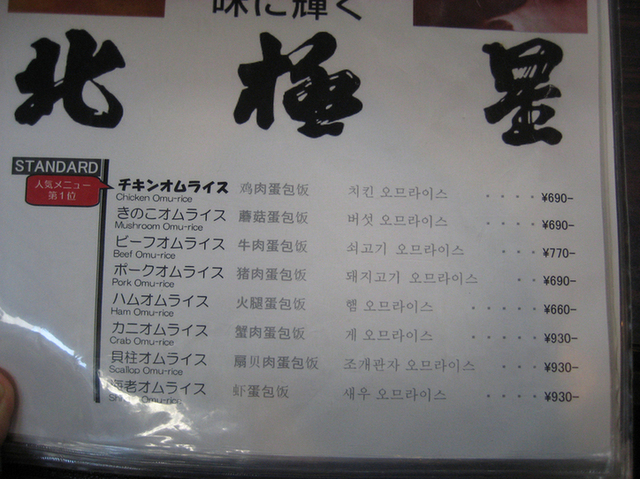 味に輝く
北極星
STANDARD
人気メニュー
第1位
チキンオムライス 鸡肉蛋包饭 치킨 오므라이스 ・・・・ ¥690-
Chicken Omu-rice
きのこオムライス 蘑菇蛋包饭 버섯 오므라이스 ・・・・ ¥690-
Mushroom Omu-rice
ビーフオムライス 牛肉蛋包饭 쇠고기 오므라이스 ・・・・ ¥770-
Beef Omu-rice
ポークオムライス 猪肉蛋包饭 돼지고기 오므라이스 ・・・ ¥690-
Pork Omu-rice
ハムオムライス 火腿蛋包饭 햄 오므라이스 ・・・・・ ¥660-
Ham Omu-rice
カニオムライス 蟹肉蛋包饭 게 오므라이스 ・・・・・ ¥930-
Crab Omu-rice
貝柱オムライス 扇贝肉蛋包饭 조개관자 오므라이스 ・・・ ¥930-
Scallop Omu-rice
海老オムライス 虾蛋包饭 새우 오므라이스 ・・・・ ¥930-
Omu-rice